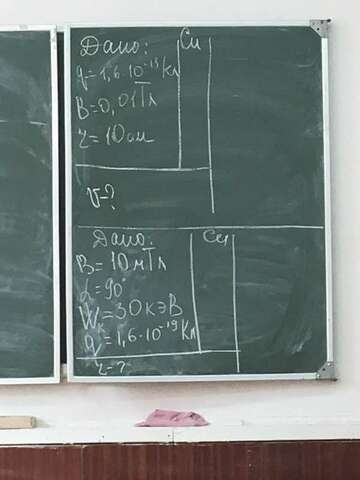 Дано: Си
q=1,6·10⁻¹⁹Кл
B=0,01Тл
r=10см
V-?
Дано: Си
B=10мТл
α=90°
Wк=30кэВ
q=1,6·10⁻¹⁹Кл
r-?